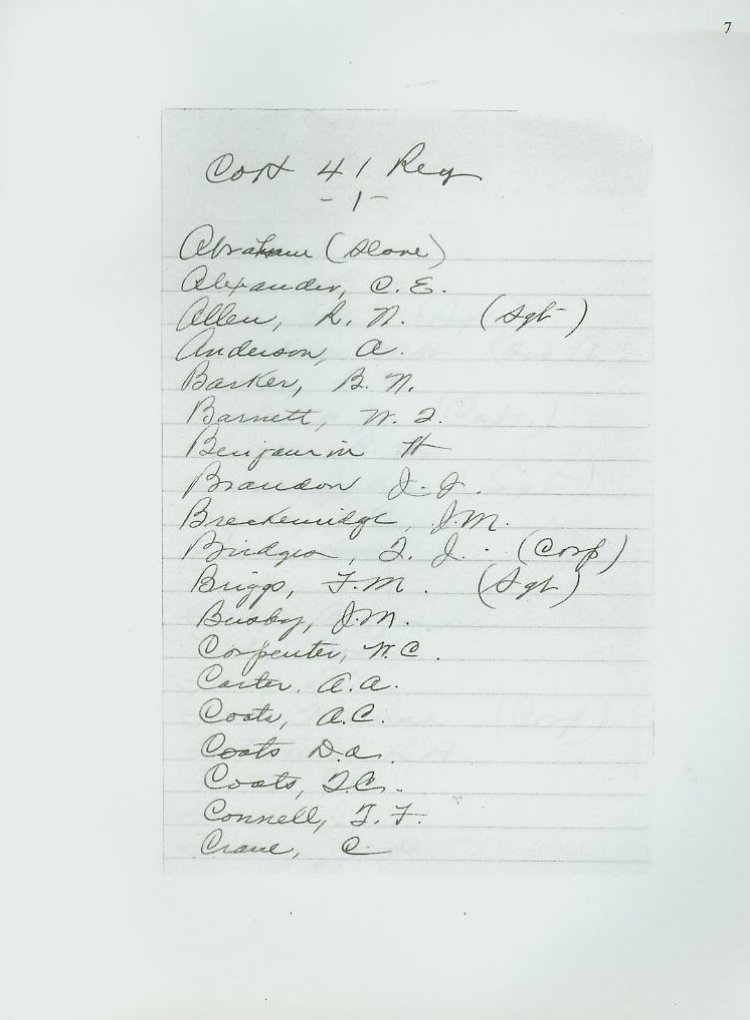 7
Co H 41 Reg
- 1 -
Abraham (Slave)
Alexander, C. E.
Allen, R. N. (Sgt)
Anderson, A.
Barker, B. N.
Barnett, W. T.
Benjamin H
Brandon J. J.
Breckenridge, J. M.
Bridges, T. J. (Corp)
Briggs, F. M. (Sgt)
Busby, J. M.
Carpenter, W. C.
Carter, A. A.
Coats, A. C.
Coats D. A.
Coats, T. C.
Connell, T. F.
Crane, C